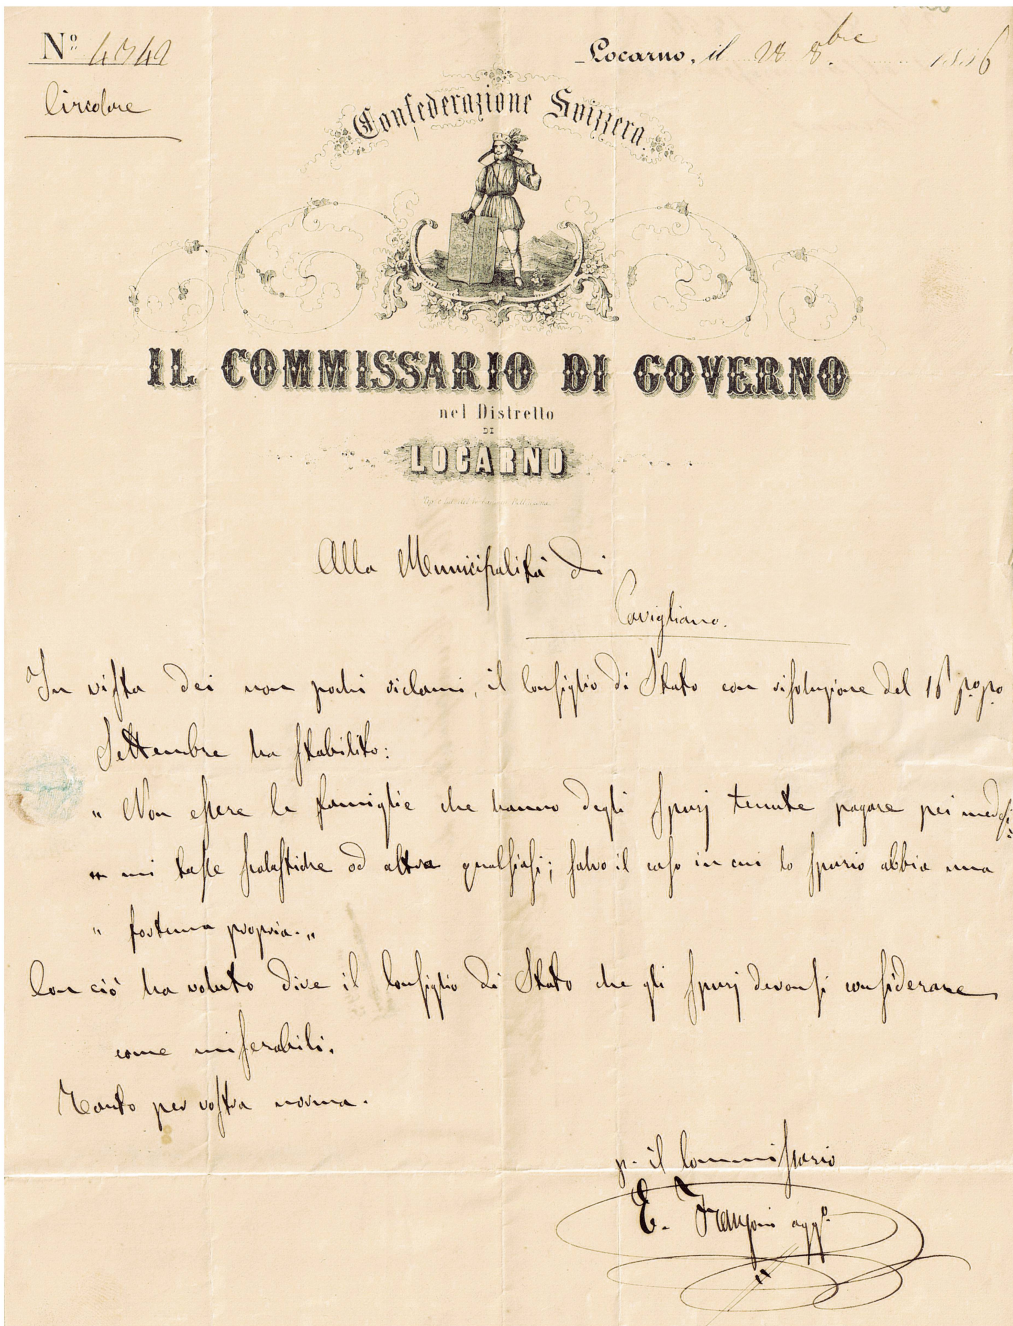 Nº 4342
Locarno, il 28 8bre 1856
Circolare
Confederazione Svizzera.
IL COMMISSARIO DI GOVERNO
nel Distretto
DI
LOCARNO
Alla Municipalità di
Cavigliano.
In vista dei non pochi riclami, il Consiglio di Stato con risoluzione del 16 p.º p.º
Settembre ha stabilito:
„ Non essere le famiglie che hanno degli spurj tenute pagare pei medesi-
„ mi tasse scolastiche od altre qualsiasi; salvo il caso in cui lo spurio abbia una
„ fortuna propria. „
Con ciò ha voluto dire il Consiglio di Stato che gli spurj devonsi considerare
come miserabili.
Tanto per vostra norma.
p. il Commissario
E. Franzoni aggº